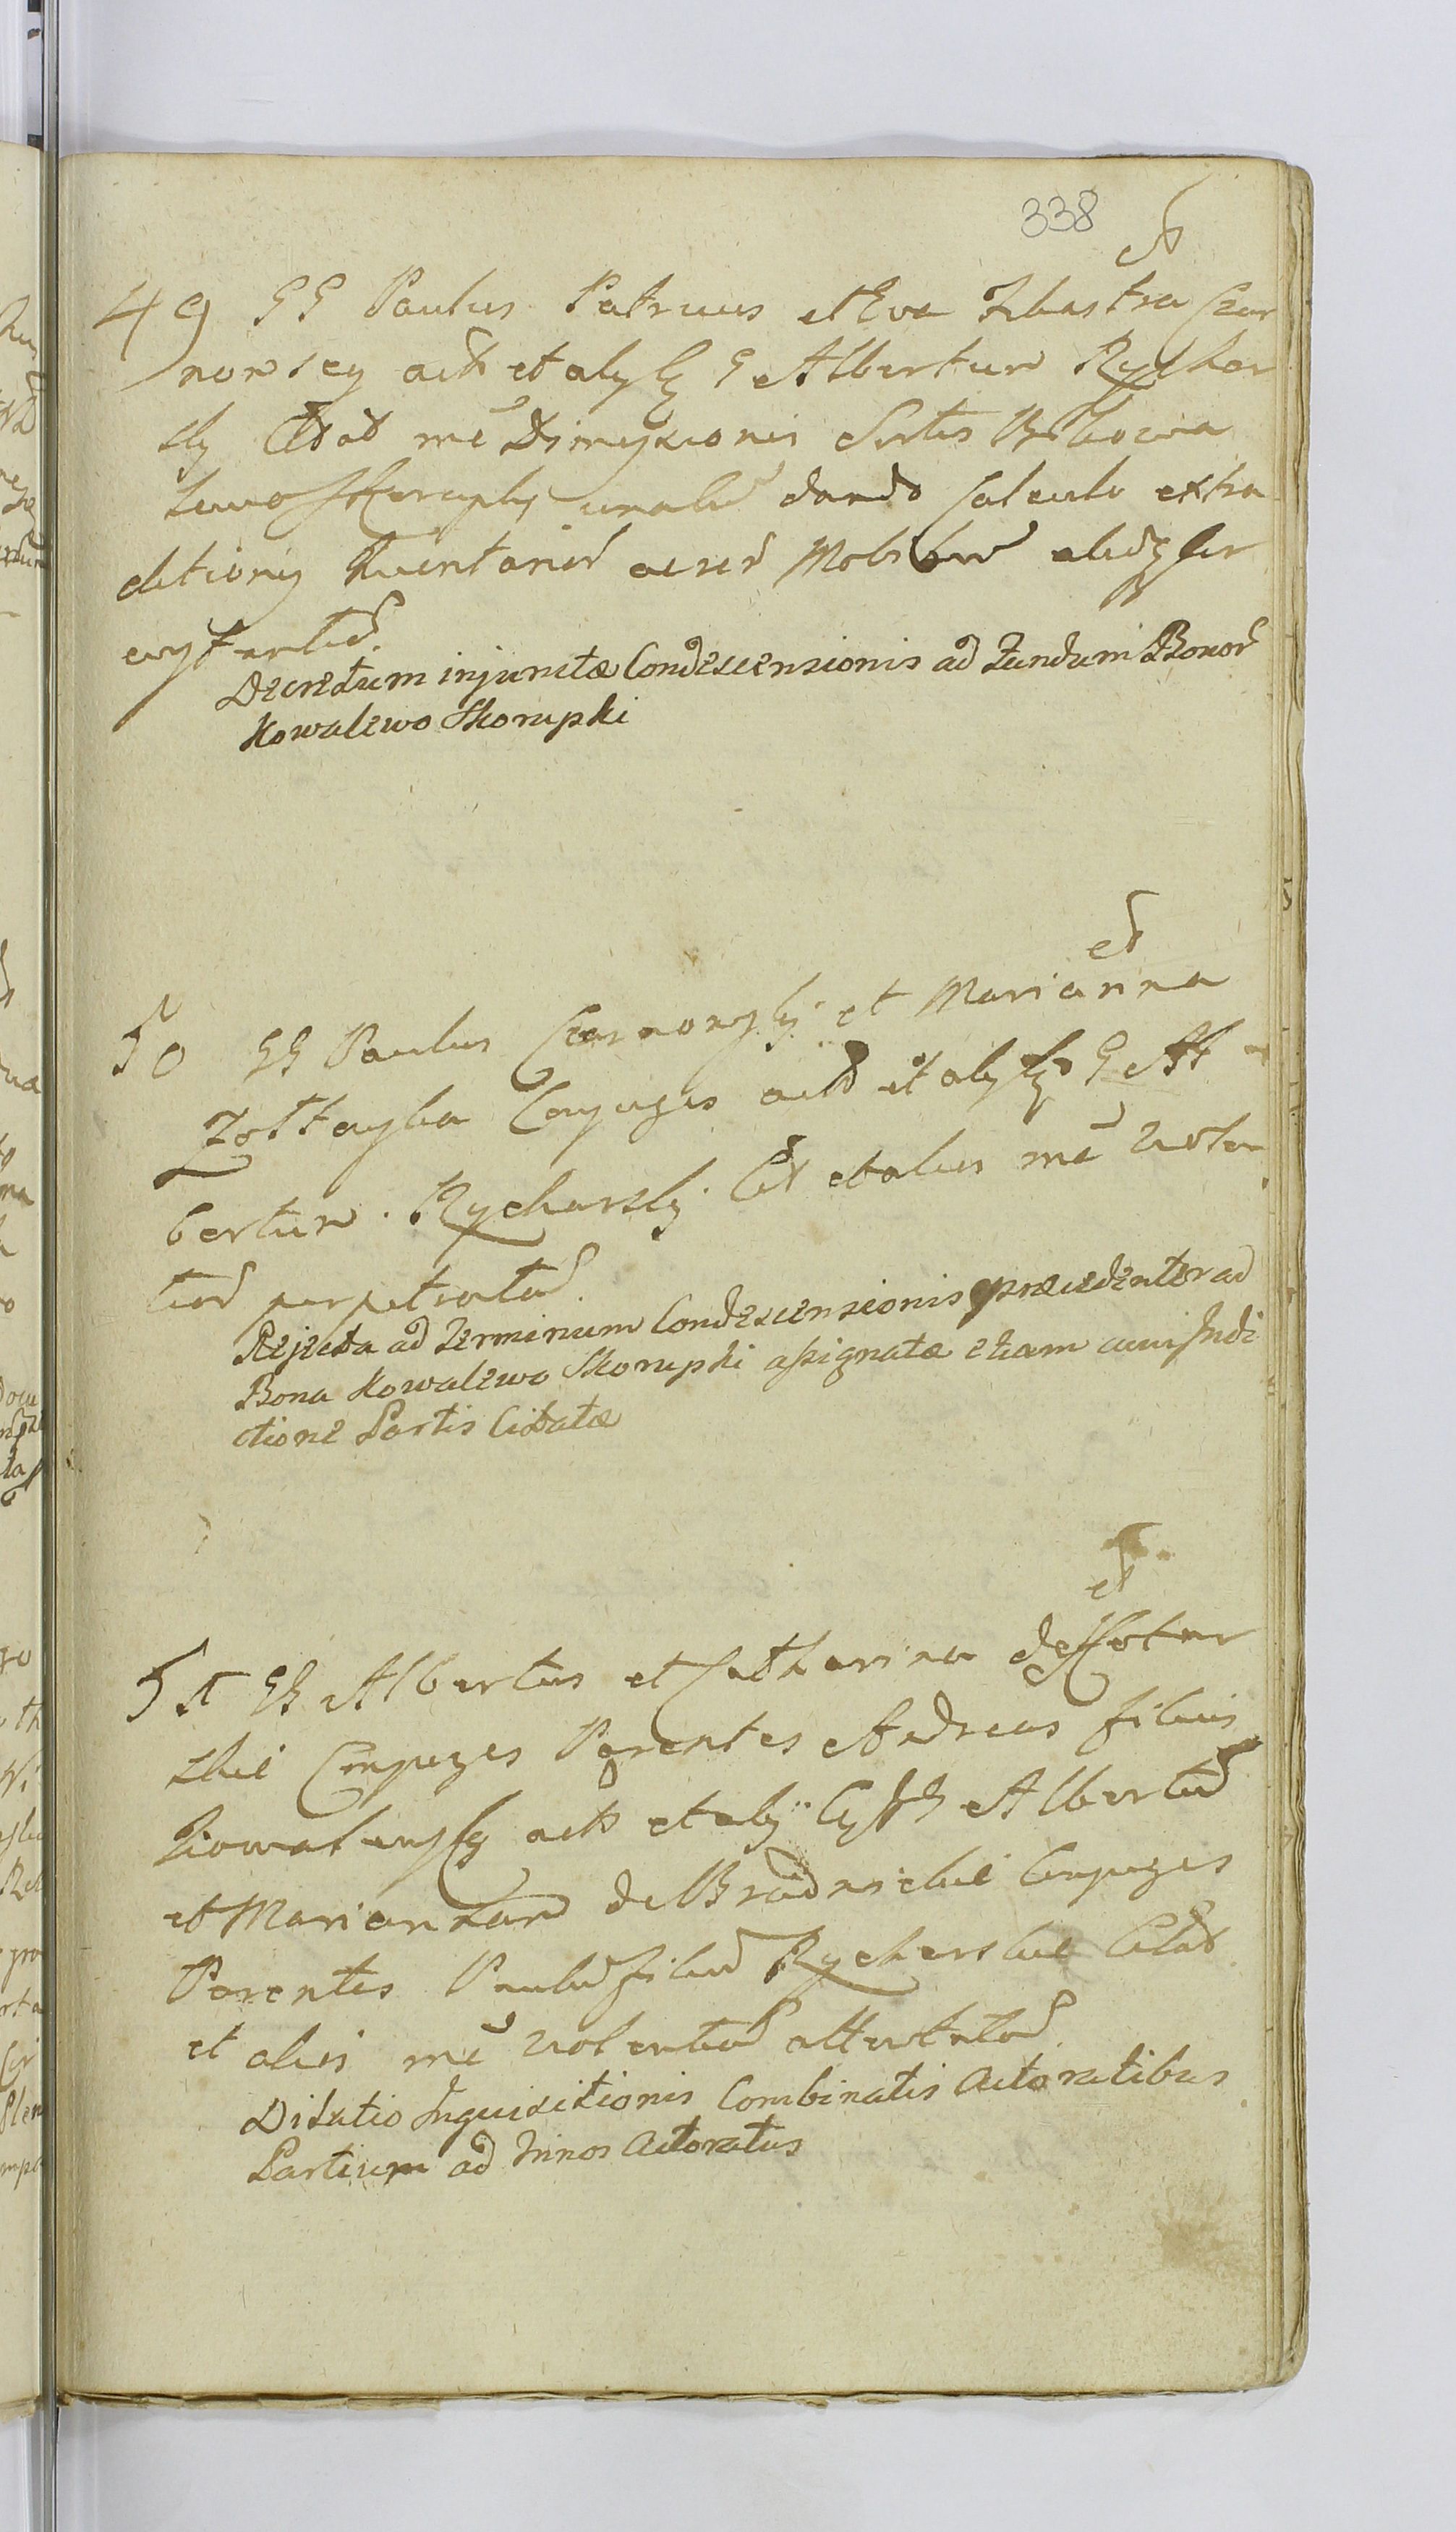 338
et
49 GG Paulus Patruus et Eva Czar
nowscy act et alij G Albertum Rychar
sky Citat mē Dimissionis Sortis Kowa
lewo Skorupki dando Calculo extra
ditionis Inventarior Mobilium
Decretum injunctæ Condescensionis ad Fundum Bonor
Kowalewo Skorupki
et
50 GG Paulus Czarnowsky et Marianna
Zoltayka Conjuges act et alij G Al
bertum Rycharsky Cit et alios mē violen
tiar perpetratar
Rejecta ad Terminum Condescensionis præcedenter ad
Bona Kowalewo Skorupki assignatæ etiam cum Indi
ctione Partis Citatæ
et
51 GG Albertus et Catharina de
skie Conjuges Parentes Andreas filius
Kowalewsky act et alij Albertum
et Mariannam de Brudnickie Conjuges
Parentes Paulum filium Rycharskie Citat
et alios mē violentiar attentatar
Dilatio Inquisitionis Combinatis Actoratibus
Partium ad binos Actoratus